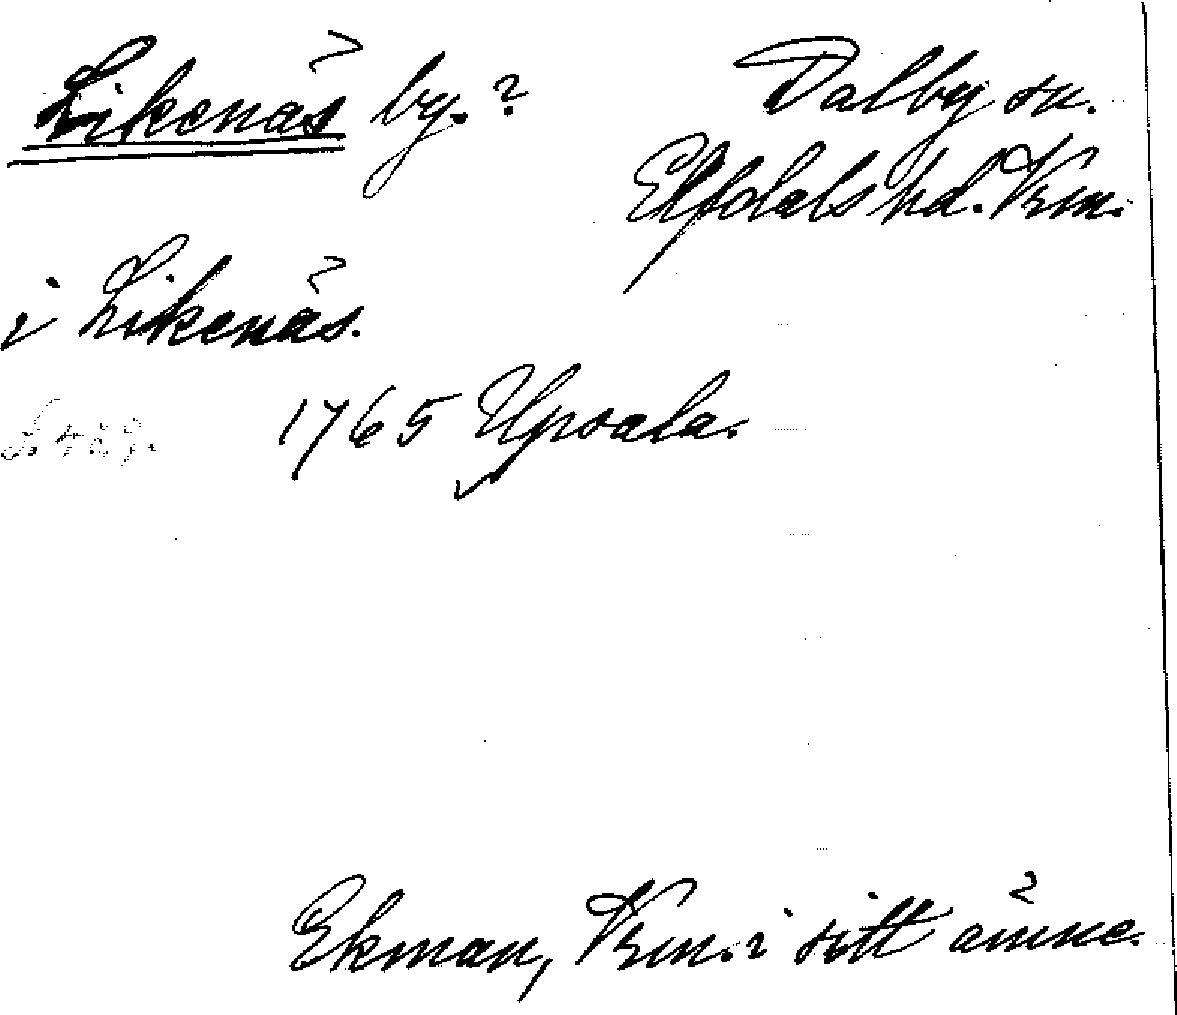 Likenäs by.? Dalby sn.
Elfdals hd. Vrm.
i Likenäs.
1765 Upsala.
Ekman, Vrm. i sitt ämne.